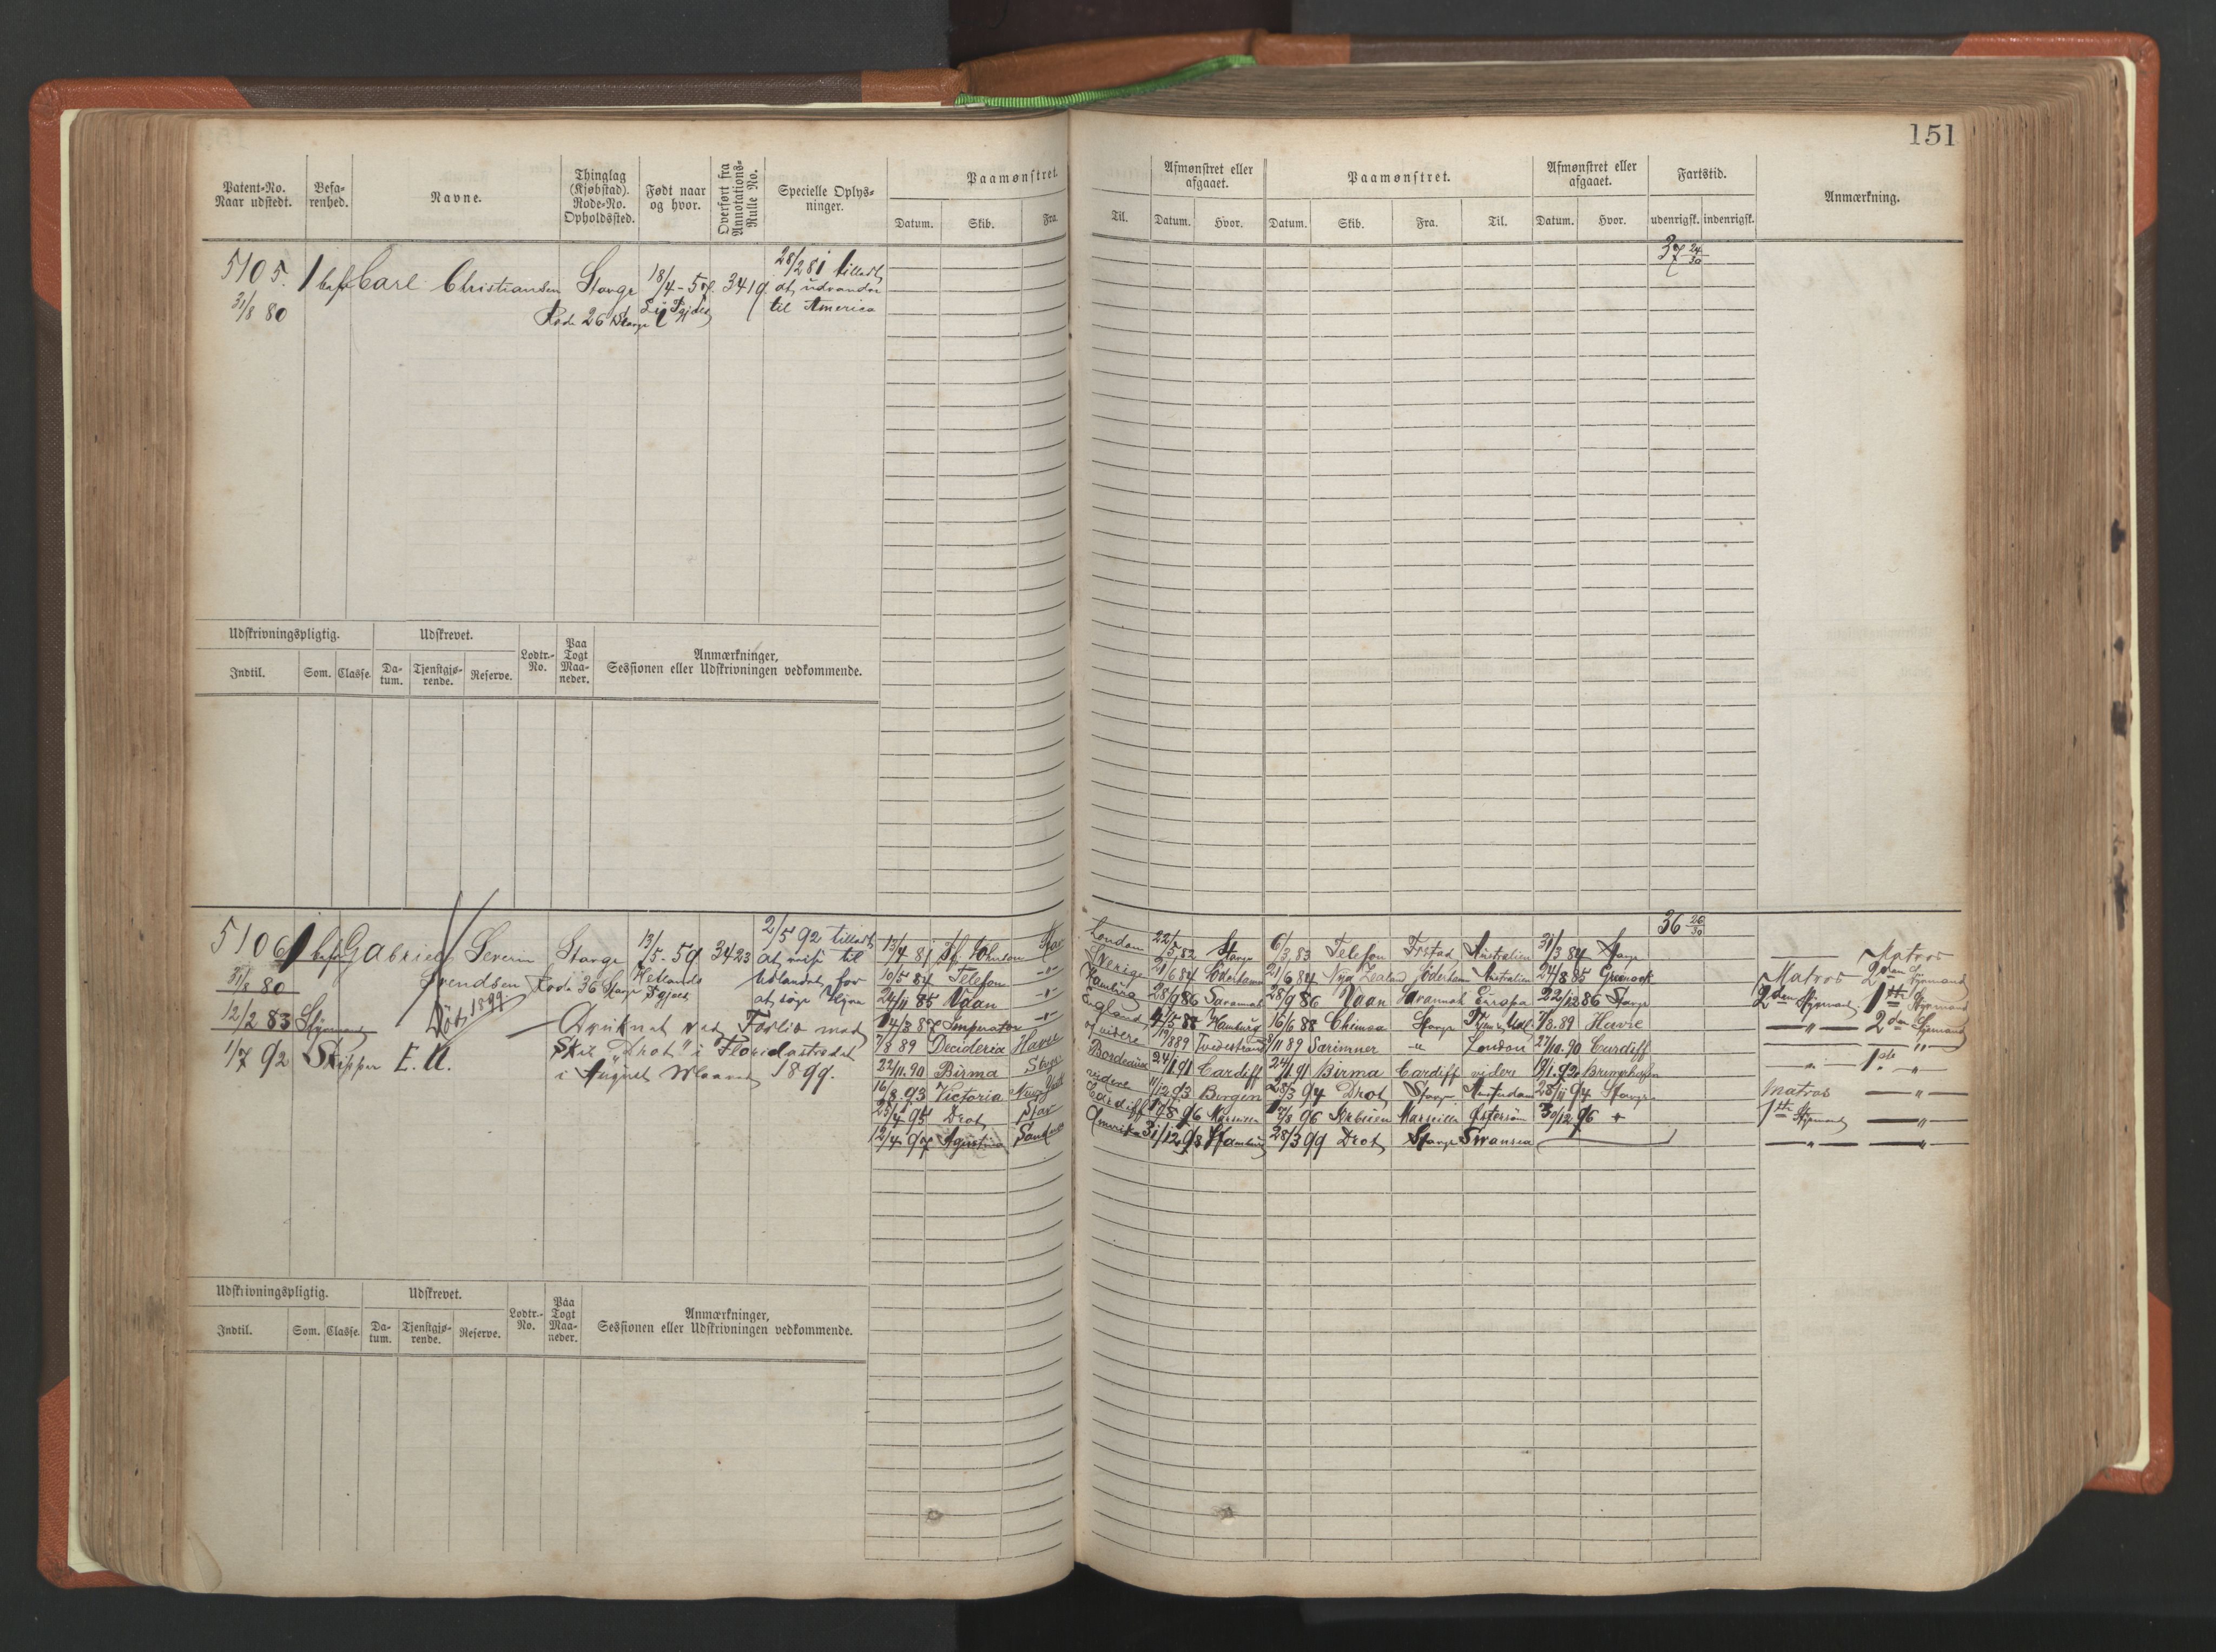 151
Patent-No. Naar udstedt. Befa-renhed. Navne. Thinglag (Kjøbstad). Rode-No. Opholdssted. Født naar og hvor. Overført fra Annotations-Rulle No. Specielle Oplys-ninger. Paamønstret. Afmønstret eller afgaaet. Paamønstret. Afmønstret eller afgaaet. Fartstid. Anmærkning.
Datum. Skib. Fra. Til. Datum. Hvor. Datum. Skib. Fra. Til. Datum. Hvor. udenrigsk. indenrigsk.
5105. 1 bef Carl Christiansen Stavgr 18/4-57 3419 28/2 81 tilladt 37 24/30
31/8 80 at udvandre
Rode 26 Stavgr til America
Udskrivningspligtig. Udskrevet. Lodtr.-No. Paa Togt Maa-neder. Anmærkninger, Sessionen eller Udskrivningen vedkommende.
Indtil. Som. Classe. Da-tum. Tjenstgjø-rende. Reserve.
5106 1 bef Gabriel Severin Stavgr 13/5-59 3423 2/5 92 tilladt 36 26/30
31/8 80 Svendsen Rode 36 Stavgr Hetlands Pgjæld at reise til
12/2 83 Styrmand Död 1899 Udlandet for at søge Hyre
1/7 92 Skipper E. U.
Druknet ved Forlis med
Skib "Drot" i Floridastrædet
i August Maaned 1899.
13/4 81 Johnson Stav London 22/5 82 Stavgr 6/3 83 Telefon Frstad Australien 31/3 84 Stavgr Matros
10/5 84 Telefon -"- Sverige 21/6 84 Söderhamn 21/6 84 Nya Zealand Söderhamn Australien 24/8 85 Greenock Matros 2den Styrmand
24/11 85 Ydan -"- Hamburg 28/9 86 Savannah 28/9 86 Ydan Savannah Europa 22/12 86 Stavgr 2den Styrmand 1ste Styrmand
14/3 87 Imperator -"- England 88 Hamburg 16/6 88 Chimæra Stavgr 89 Havre -"- 2den Styrmand
7/8 89 Decideria Havre videre 89 Tvedestrand 8/11 89 Særimner -"- London 27/10 90 Cardiff -"- -"-
22/11 90 Birma Stavgr Bordeaux 24/1 91 Cardiff 24/1 91 Birma Cardiff videre 92 Bremerhafen -"- 1ste -"-
16/8 93 Victoria New York videre 11/12 93 Bergen 28/3 94 Drot Stavgr Amsterdam 28/11 94 Stavgr Matros -"-
25/4 95 Drot Stav Cardiff 96 Marseille 96 Marseille Østersöen 30/12 96 + 1ste Styrmand -"-
12/4 97 Agustina Sandnes Amerika 31/12 98 Hamburg 28/3 99 Drot Stavgr Swansea -"- -"-
Udskrivningspligtig. Udskrevet. Lodtr.-No. Paa Togt Maa-neder. Anmærkninger, Sessionen eller Udskrivningen vedkommende.
Indtil. Som. Classe. Da-tum. Tjenstgjø-rende. Reserve.